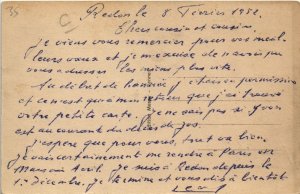 35
Redon le 8 Février 1932
Chers cousin et cousine
Je viens vous remercier pour vos meil-
leurs vœux et je m'excuse de n'avoir pu
vous adresser les miens plus vite.
Au début de l'année j'étais en permission
et ce n'est qu'à mon retour que j'ai trouvé
votre petite carte. Je ne sais pas si Yvon
est au courant du décès de
J'espère que pour vous, tout va bien,
Je vais certainement me rendre à Paris en
Mai ou Août. Je suis à Redon depuis le
1er Décembre. Je termine et vous dis à bientôt